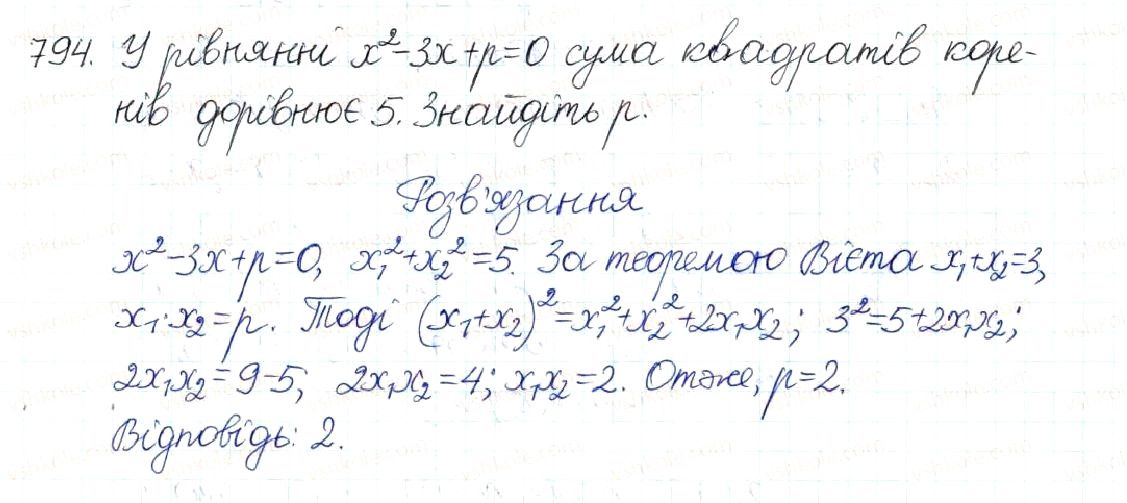 794. У рівнянні x²-3x+p=0 сума квадратів коре-
нів дорівнює 5. Знайдіть p.
Розв'язання
x²-3x+p=0, x₁²+x₂²=5. За теоремою Вієта x₁+x₂=3,
x₁·x₂=p. Тоді (x₁+x₂)²=x₁²+x₂²+2x₁x₂; 3²=5+2x₁x₂;
2x₁x₂=9-5; 2x₁x₂=4; x₁x₂=2. Отже, p=2.
Відповідь: 2.